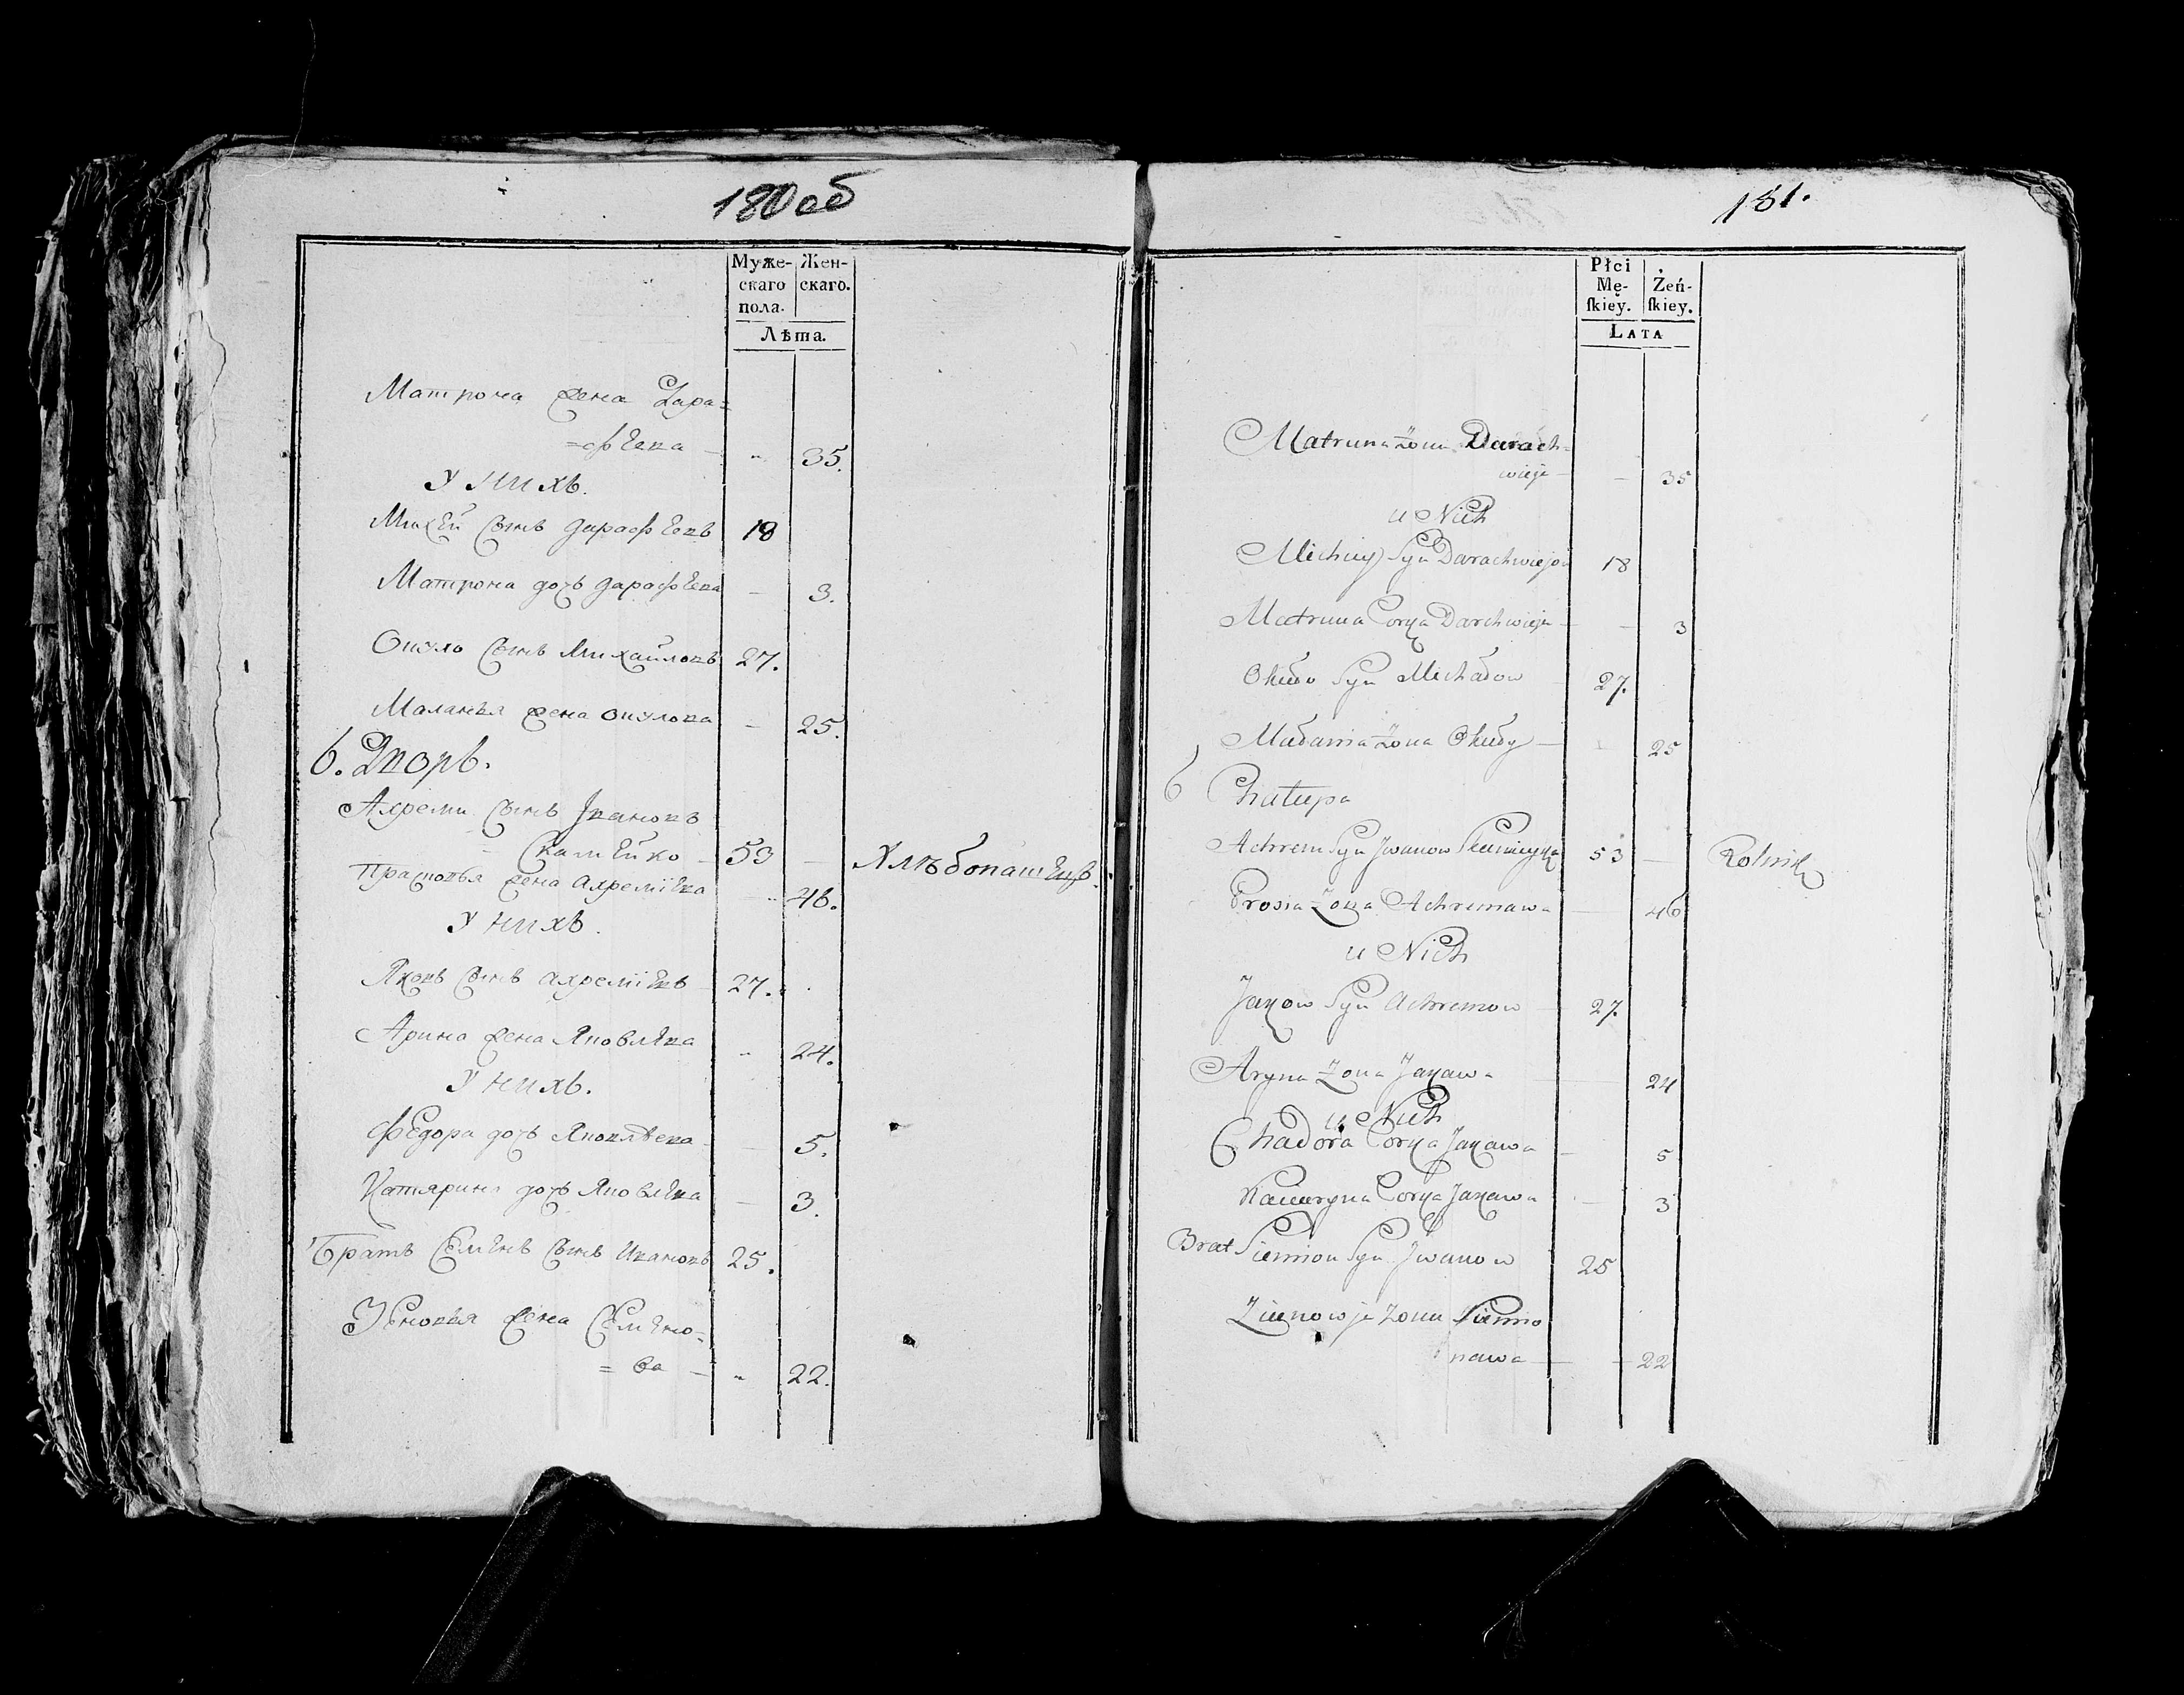 180 об
Муже-
скаго
пола.
Жен-
скаго.
Лѣта.
Матрона жена Дара=
=фѣева - " 35.
У нихъ.
Михей сынъ дарафѣевъ 18
Матрона дочь дарафѣева - 3.
Окуло сынъ Михайловъ 27.
Маланья жена окулова - 25.
6. Дворъ.
Ахремъ сынъ Ивановъ
Скамейко - 53 - Хлѣбопашецъ.
Прасковья жена ахреміева - 46.
У нихъ.
Яковъ сынъ ахреміевъ 27.
Арина жена Яковлева " 24.
У нихъ.
Федора дочь Яковлева - 5.
Катярина дочь Яковлева - 3.
Братъ Семенъ сынъ Ивановъ 25.
Зѣновья жена Семено=
= ва - " 22.
181.
Płci
Mę-
ſkiey.
Żeń-
ſkiey.
LATA
Matruna Żona Darach=
wieja - - 35
u Nich
Michiey Syn Darachwiejow 18
Matruna Corka Darchwieja - - 3
Okuło Syn Michałow 27.
Małania Żona Okuły - 25
6 Chałupa
Achrem Syn Jwanow Skamieyka 53 - Rolnik
Prosia Żona Achremawa - 46
u Nich
Jakow Syn Achremow 27.
Aryna Żona Jakawa - 24
u Nich
Chadora Corka Jakawa - 5
Kaciaryna Corka Jakawa - 3
Brat Siemion Syn Jwanow 25
Zienowja Żona Siemio
nawa - - 22